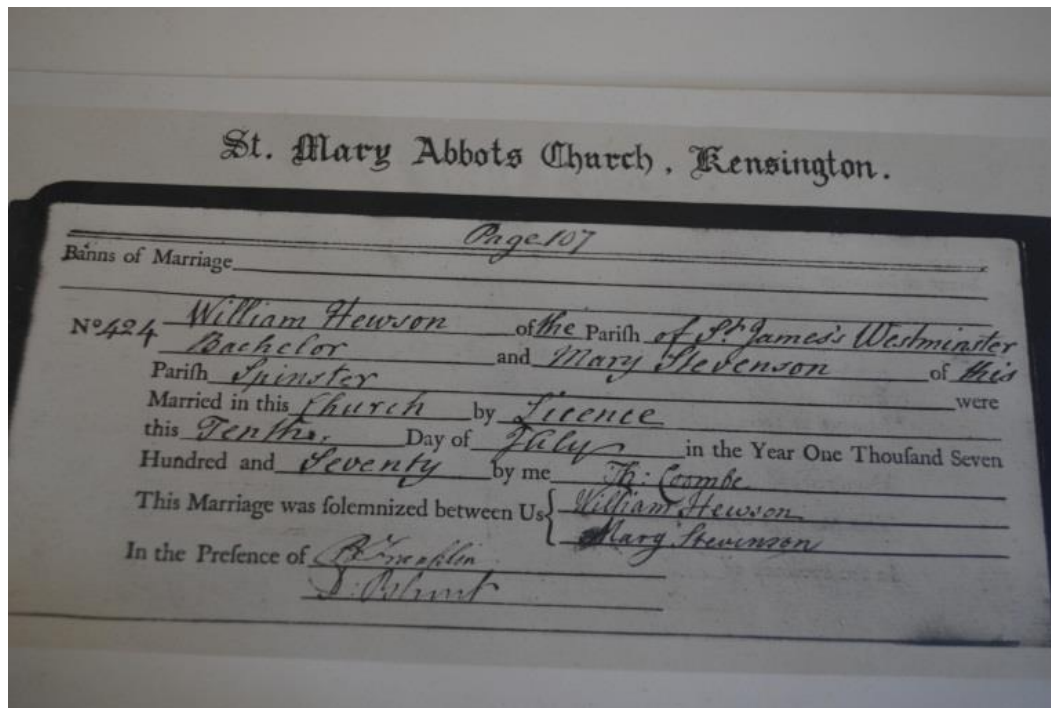 St. Mary Abbots Church, Kensington.
Page 107
Banns of Marriage
Nº 424 William Hewson of the Pariſh of St. James's Westminster
Bachelor and Mary Stevenson of this
Pariſh Spinster were
Married in this Church by Licence
this Tenth Day of July in the Year One Thouſand Seven
Hundred and Seventy by me Th: Coombe
This Marriage was solemnized between Us William Hewson
Mary Stevinson
In the Preſence of B Franklin
D: Blunt